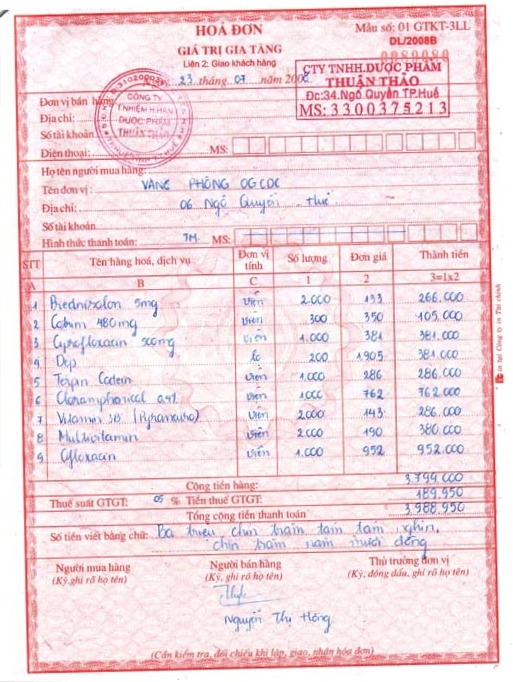 HOÁ ĐƠN
GIÁ TRỊ GIA TĂNG
Liên 2: Giao khách hàng
Mẫu số: 01 GTKT-3LL
DL/2008B
0080080
23 tháng 07 năm 2008
CTY TNHH.DƯỢC PHẨM
THUẬN THẢO
Đc:34.Ngô Quyền TP.Huế
MS: 3300375213
CÔNG TY
T.NHIỆM H.HẠN
DƯỢC PHẨM
THUẬN THẢO
Đơn vị bán hàng
Địa chỉ:
Số tài khoản
Điện thoại: MS:
Họ tên người mua hàng:
Tên đơn vị: VĂNG PHÒNG OGCDC
Địa chỉ: 06 Ngô Quyền Huế
Số tài khoản
Hình thức thanh toán: TM MS:
STT Tên hàng hoá, dịch vụ Đơn vị tính Số lượng Đơn giá Thành tiền
A B C 1 2 3=1x2
1 Prednisolon 5mg viên 2.000 133 266.000
2 480mg viên 300 350 105.000
3 Ciprofloxacin 500mg viên 1.000 381 381.000
4 Dep lọ 200 1905 381.000
5 Terpin Codein viên 1.000 286 286.000
6 Cloramphenical viên 1000 762 762.000
7 Vitamin 3B viên 2000 143 286.000
8 Multivitamin viên 2.000 190 380.000
9 Ofloxacin viên 1.000 952 952.000
Cộng tiền hàng: 3.799.000
Thuế suất GTGT: 05 % Tiền thuế GTGT: 189.950
Tổng cộng tiền thanh toán 3.988.950
Số tiền viết bằng chữ: Ba triệu, chín trăm tám tám nghìn,
chín trăm năm mươi đồng
Người mua hàng Người bán hàng Thủ trưởng đơn vị
(Ký, ghi rõ họ tên) (Ký, ghi rõ họ tên) (Ký, đóng dấu, ghi rõ họ tên)
Nguyễn Thị Hồng
(Cần kiểm tra, đối chiếu khi lập, giao, nhận hóa đơn)
in tại Công ty in Tài chính